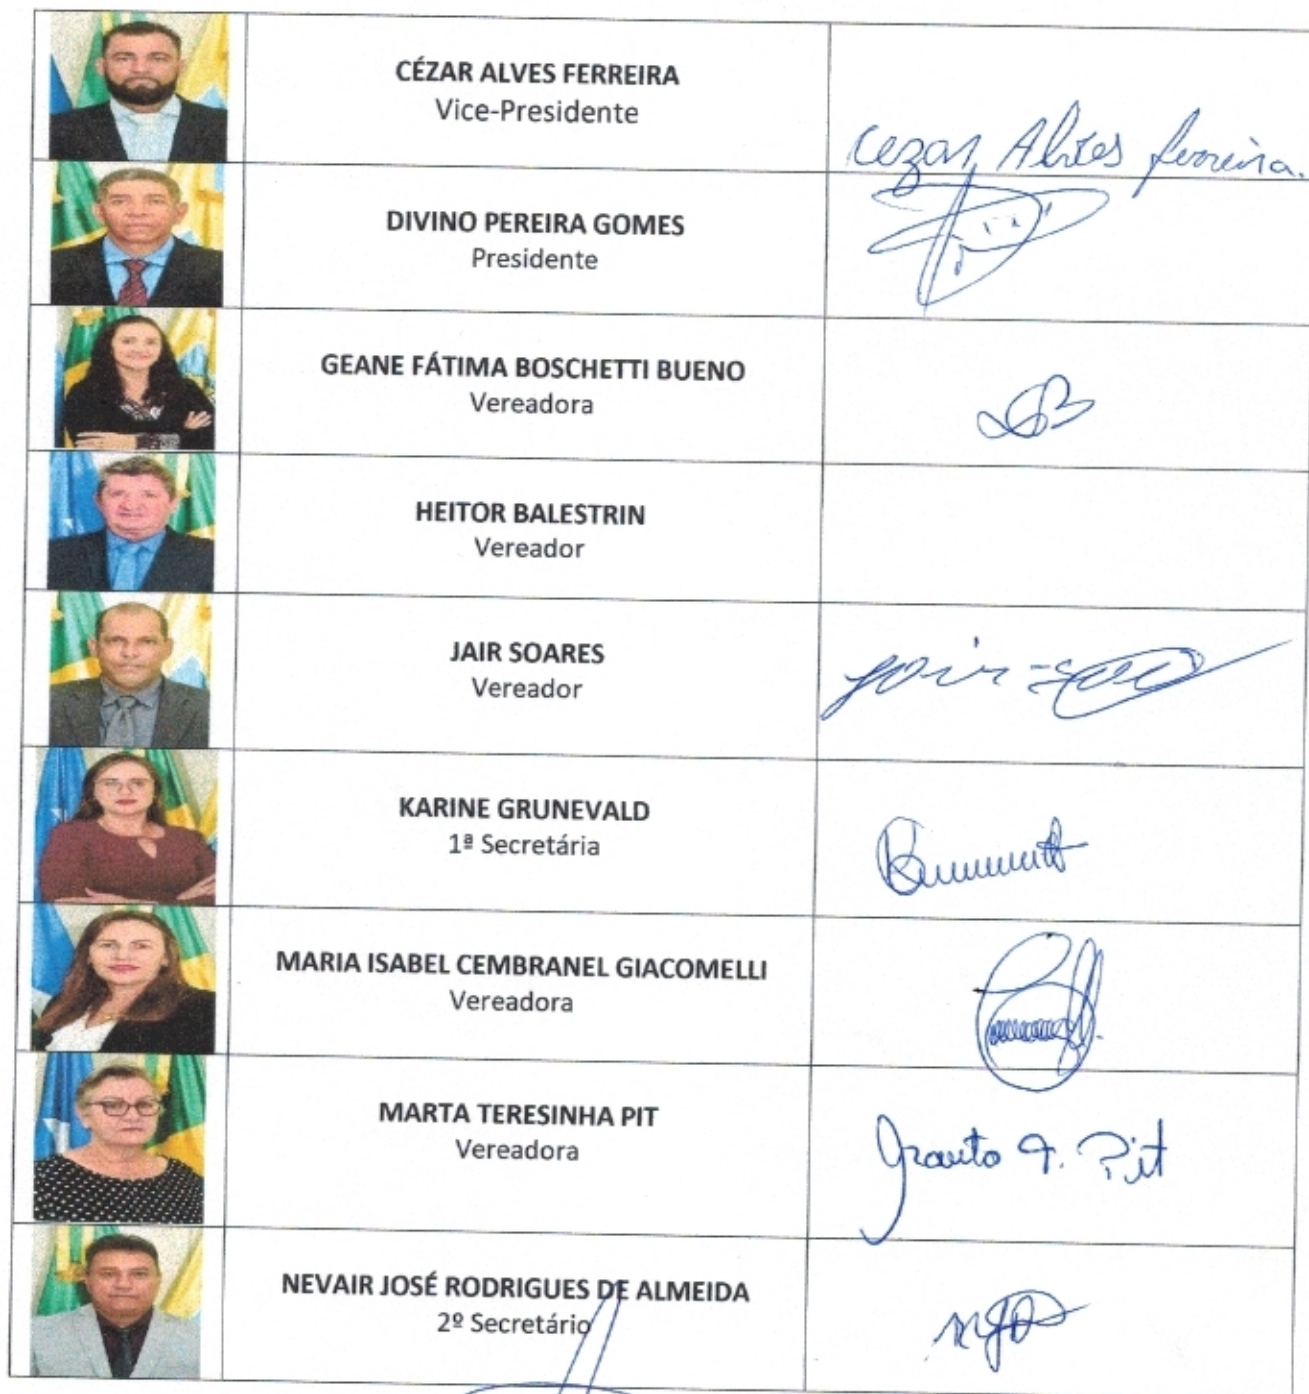 CÉZAR ALVES FERREIRA
Vice-Presidente
Cezar Alves Ferreira.
DIVINO PEREIRA GOMES
Presidente
GEANE FÁTIMA BOSCHETTI BUENO
Vereadora
HEITOR BALESTRIN
Vereador
JAIR SOARES
Vereador
Jair
KARINE GRUNEVALD
1ª Secretária
MARIA ISABEL CEMBRANEL GIACOMELLI
Vereadora
MARTA TERESINHA PIT
Vereadora
Marta T. Pit
NEVAIR JOSÉ RODRIGUES DE ALMEIDA
2º Secretário